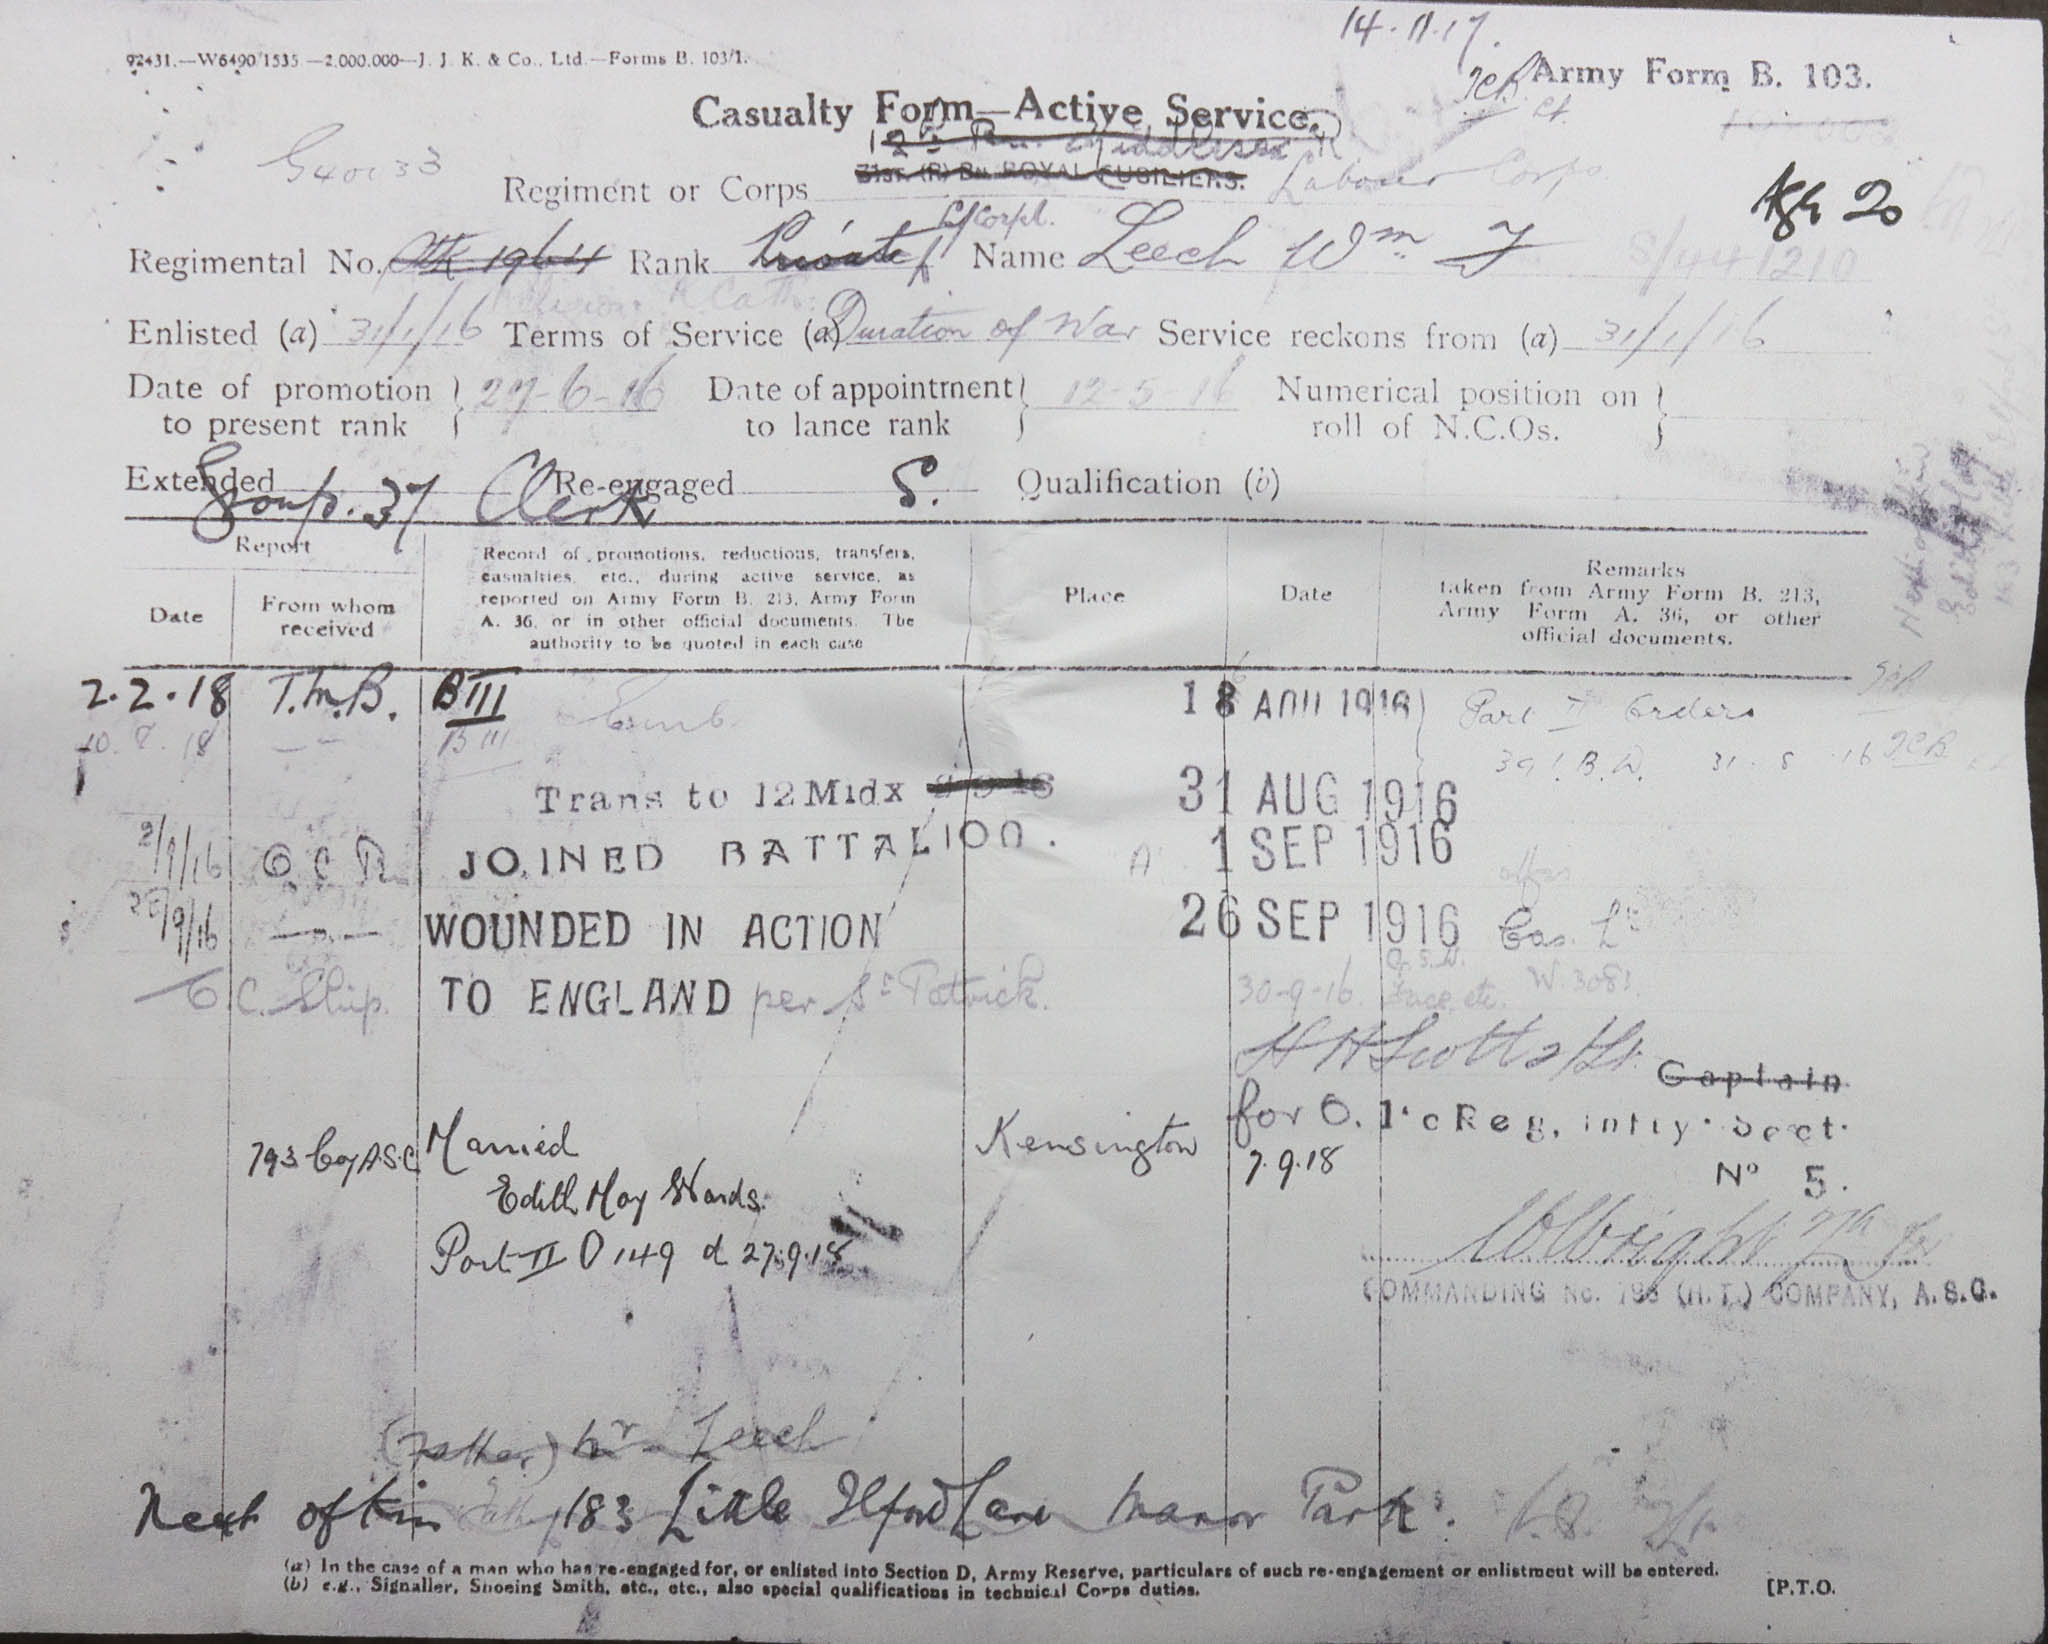 14.11.17.
92431.—W6490/1535.—2,000,000—J. J. K. & Co., Ltd.—Forms B. 103/1.
Army Form B. 103.
Casualty Form—Active Service.
12th Bn. Middlesex R
G40033
Regiment or Corps 31st. (R) Bn. ROYAL FUSILIERS. Labour Corps.
Age 20
L/Corpl.
Regimental No. 1964 Rank Private Name Leech Wm. J S/441210
R Cath.
Enlisted (a) 31/1/16 Terms of Service (a) Duration of War Service reckons from (a) 31/1/16
Date of promotion to present rank 27-6-16 Date of appointment to lance rank 12-5-16 Numerical position on roll of N.C.Os.
Extended Re-engaged Qualification (b)
Group. 37 Clerk S.
Report
Date
From whom received
Record of promotions, reductions, transfers,
casualties, etc., during active service, as
reported on Army Form B. 213, Army Form
A. 36, or in other official documents. The
authority to be quoted in each case
Place
Date
Remarks
taken from Army Form B. 213,
Army Form A. 36, or other
official documents.
Next of kin
Edith May
2.2.18 T.M.B. BIII Emb. 18 AUG 1916 Part II Orders
10.8.18 —"— BIII
31.8.16
Trans to 12 Midx 31 AUG 1916
2/9/16 O.C. Bn JOINED BATTALION. 1 SEP 1916
28/9/16 —"— WOUNDED IN ACTION 26 SEP 1916 Cas. Lt
G.S.W.
O.C. Ship. TO ENGLAND per St Patrick. 30-9-16. Face etc. W.3083.
H H Scott 2/Lt. Captain
for O. I/c Reg. Infty. Sect.
No 5.
793 Coy A.S.C. Married Kensington 7.9.18
Edith May Wards.
Part II O 149 d 27.9.18
COMMANDING No. 793 (H.T.) COMPANY, A.S.C.
(Father) Mr Leech
Next of kin 183 Little Ilford Lane Manor Park.
(a) In the case of a man who has re-engaged for, or enlisted into Section D, Army Reserve, particulars of such re-engagement or enlistment will be entered.
(b) e.g., Signaller, Shoeing Smith, etc., etc., also special qualifications in technical Corps duties.
[P.T.O.